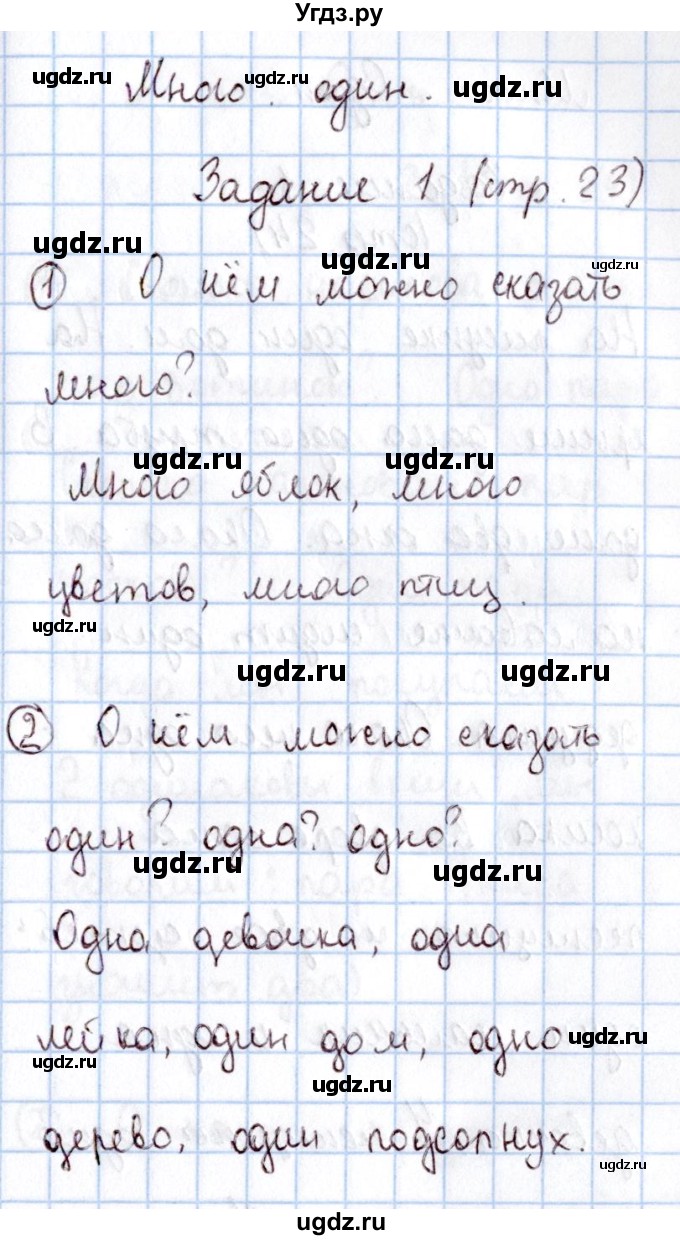 Угдз.ру
ugdz.ru ugdz.ru ugdz.ru
Много. один.
Задание 1 (стр. 23)
ugdz.ru ugdz.ru ugdz.ru
① О чём можно сказать
много?
ugdz.ru ugdz.ru
Много яблок, много
цветов, много птиц.
ugdz.ru
ugdz.ru ugdz.ru
② О чём можно сказать
один? одна? одно?
ugdz.ru ugdz.ru
Одна девочка, одна
лейка, один дом, одно
ugdz.ru ugdz.ru
ugdz.ru
дерево, один подсолнух.
ugdz.ru
ugdz.ru